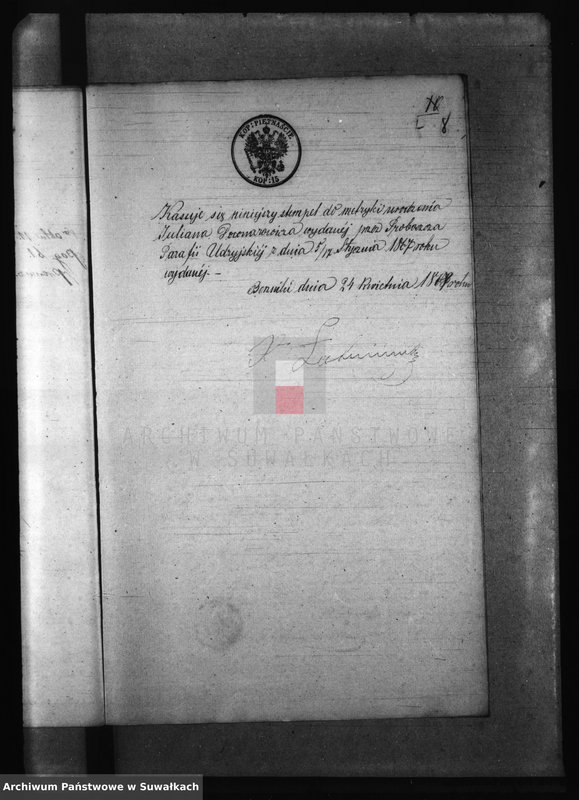 8
KOP: PIĘTNAŚCIE.
KOP: 15
Kasuje się niniejszy stempel do metryki urodzenia
Juliana wydanéj przez Proboszcza
Parafii Udryjskiéj z dnia 5/17 Stycznia 1867 roku
wydanéj.–
dnia 24 Kwietnia 1867 roku
X
ARCHIWUM PAŃSTWOWE
W SUWAŁKACH
Archiwum Państwowe w Suwałkach